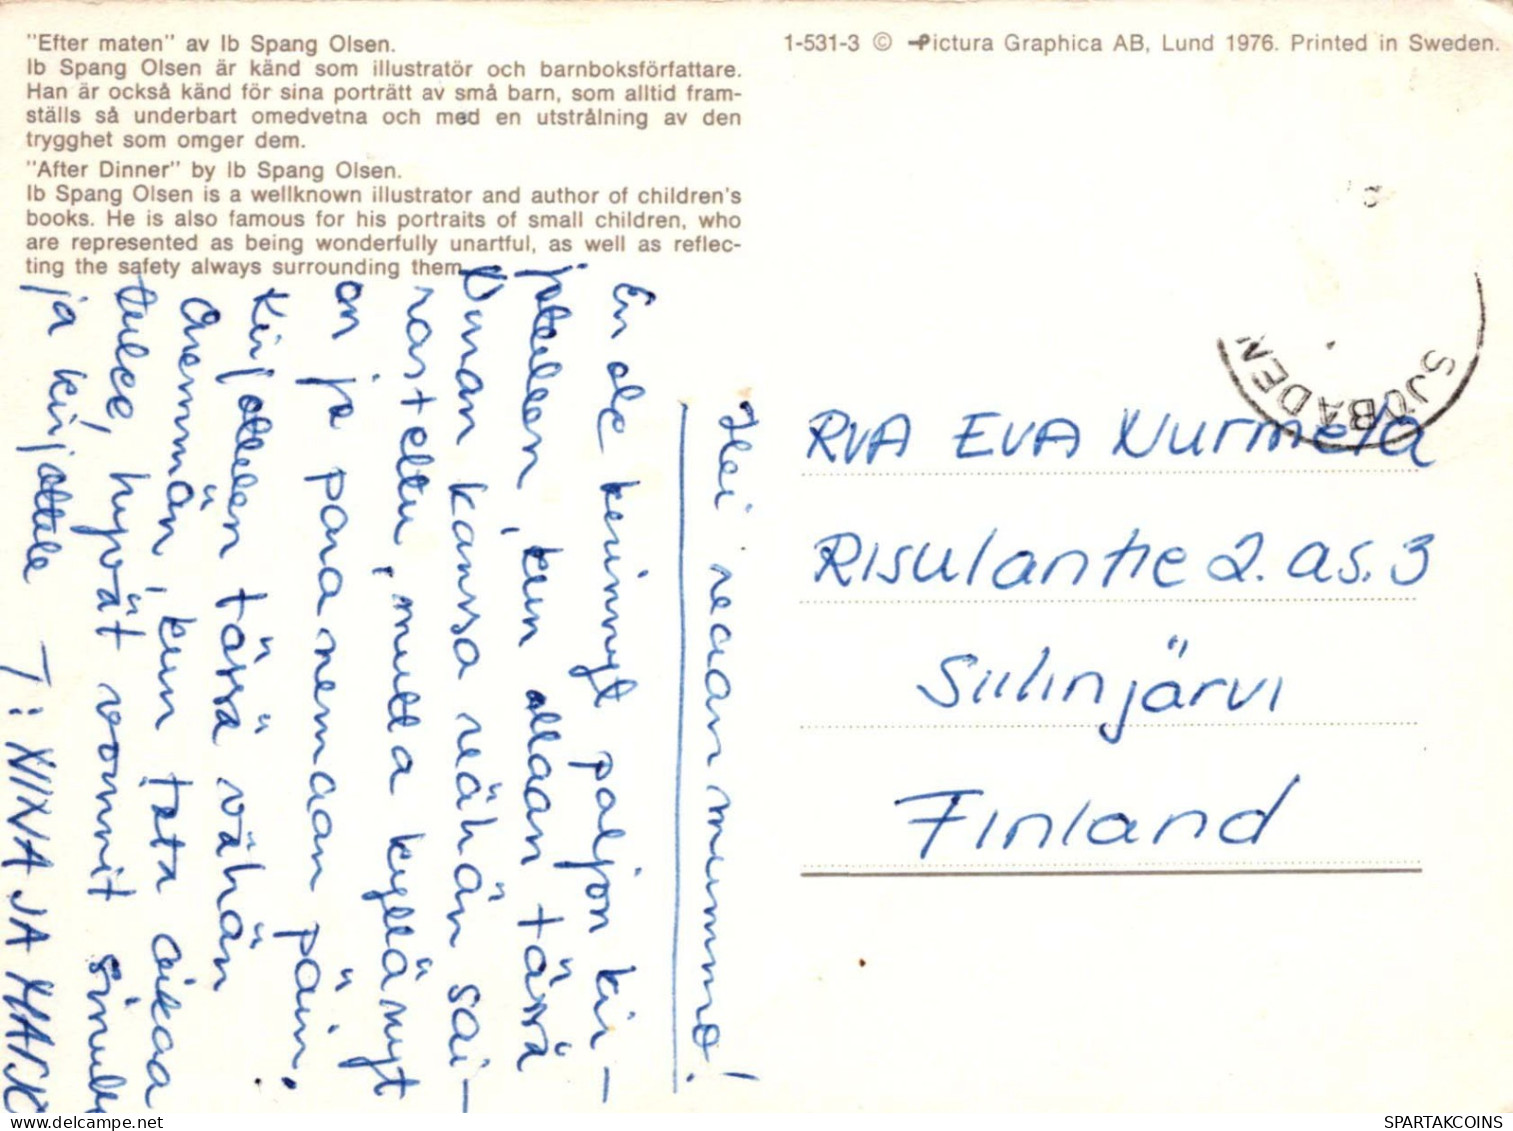 "Efter maten" av Ib Spang Olsen.
Ib Spang Olsen är känd som illustratör och barnboksförfattare.
Han är också känd för sina porträtt av små barn, som alltid fram-
ställs så underbart omedvetna och med en utstrålning av den
trygghet som omger dem.
"After Dinner" by Ib Spang Olsen.
Ib Spang Olsen is a wellknown illustrator and author of children's
books. He is also famous for his portraits of small children, who
are represented as being wonderfully unartful, as well as reflec-
ting the safety always surrounding them.
1-531-3 © Pictura Graphica AB, Lund 1976. Printed in Sweden.
Hei vaan mummo!
En ole keinnyt paljon kir-
jotellen, kun ollaan tässä
Oman kanssa vähän sai-
rasteltu, mutta kyllä nyt
on jo paranemaan päin.
Kirjotellen tässä vähän
Oremmän, kun tota aikaa
tulee, hyvät vonnit sinulle
ja kirjottele T: NIINA JA
SJÖBADEN
RVA EVA Nurmela
Risulantie 2. as. 3
Siilinjärvi
Finland
www.delcampe.net
SPARTAKCOINS